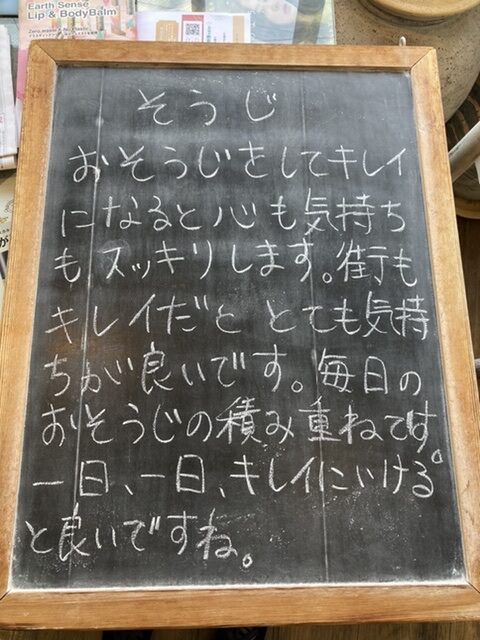 Earth Sense
Lip & BodyBalm
そうじ
おそうじをしてキレイ
になると心も気持ち
もスッキリします。街も
キレイだと とても気持
ちが良いです。毎日の
おそうじの積み重ねです。
一日、一日、キレイにいける
と良いですね。